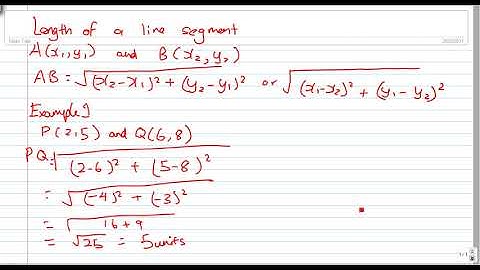 Length of a line segment
A(x₁,y₁) and B(x₂,y₂)
AB = √(x₂-x₁)² + (y₂-y₁)² or √(x₁-x₂)² + (y₁-y₂)²
Example]
P(2,5) and Q(6,8)
PQ = √(2-6)² + (5-8)²
= √(-4)² + (-3)²
= √16 + 9
= √25 = 5units